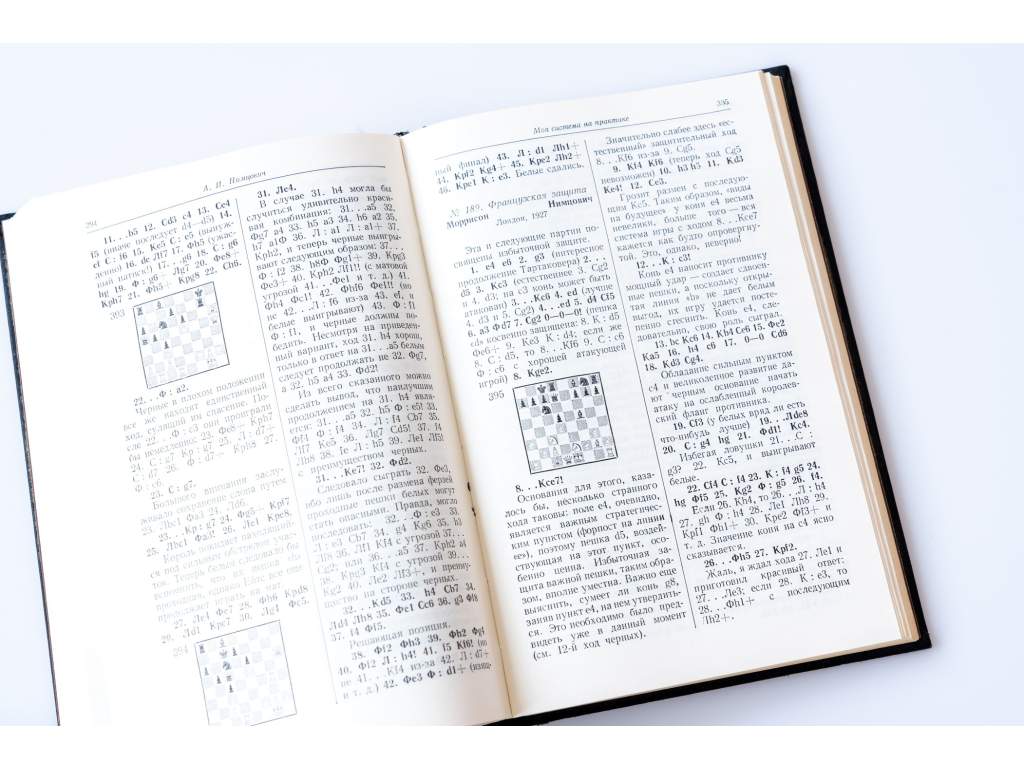 А. И. Нимцович
11. . .b5 12. Cd3 c4 13. Ce4
f5 (иначе последует d4—d5) 14.
ef C : f6 15. Ke5 C : e5 (вынуж-
лено) 16. de Лf7 17. Фh5 (ужас-
ный натиск!) 17. . .g6 18. C : g6
hg 19. Ф : g6+ Лg7 20. Фe8+
Kph7 21. Фh5+ Kpg8 22. Ch6.
393
22. . .Ф : a2.
Черные в плохом положении
все же находят единственный
ход, сулящий им спасение. По-
сле 22. . .Ф : d5 они проиграли
бы немедленно: 23. Фe8+ Kph7
24. C : g7 Kp : g7 25. Л : d7+
C : d7 26. Ф : d7+ Kph8 27.
Ф : c6.
23. C : g7.
Большого внимания заслу-
живало сохранение слона путем
23. Лbc1 Фa4 24. Лd6. Однако
после 23. . .Kp : g7 24. Фg5+ Kpf7
25. Лbc1 Фa3! 26. Лe1 Kpe8.
Король покидает находивший-
ся под сильным обстрелом учас-
ток. Теперь белым следовало бы
27. Лe4 Фc7 28. Фh6 Kpd8
29. Лd1 Kpc7 30. Лg4 Фc5.
294
31. Лe4.
В случае 31. h4 могла бы
случиться удивительно краси-
вая комбинация: 31. . .a5 32.
Фg7 a4 33. h5 a3 34. h6 a2 35.
h7 a1Ф 36. Л : a1 Л : a1+ 37.
Kph2, и теперь черные выигры-
вают следующим образом: 37. . .
Ф : f2 38. h8Ф Фg1+ 39. Kpg3
Фe3+ 40. Kph2 Лf1!! (с матовой
угрозой 41. . .Фe1 и т. д.) 41.
Фh4 Фc1! 42. Фhf6 Фe1!! (но
не 42. . .Л : f6 из-за 43. ef, и
белые выигрывают) 43. Ф : f1
Ф : f1, и черные должны по-
бедить. Несмотря на приведен-
ный вариант, ход 31. h4 хорош,
только в ответ на 31. . .a5 белым
следует продолжать не 32. Фg7,
а 32. h5 a4 33. Фd2!
Из всего сказанного можно
сделать вывод, что наилучшим
продолжением на 31. h4 явля-
ется: 31. . .a5 32. h5 Ф : e5! 33.
Фf4 Ф : f4 34. Л : f4 Cb7 35.
Лf7 Ke5 36. Лg7 Cd5! 37. f4
Лf8! 38. fe Л : h5 39. Лe1 Лf5!
с преимуществом черных.
31. . .Ke7! 32. Фd2.
Следовало сыграть 32. Фe3,
ибо лишь после размена ферзей
проходные пешки белых могут
стать опасными. Правда, могло
последовать: 32. . .Ф : e3 33.
Л : e3 Cb7 34. g4 Kg6 35. h3
Лf8 36. Лf1 Kf4 с угрозой 37. . .
Cg2, или 36. . .a5 37. Kph2 a4
38. Kpg3 Kf4 с угрозой 39. . .
Kg2 40. Лe2 Лf3+, и преиму-
щество на стороне черных.
32. . .Kd5 33. b4 Cb7 34.
Лd4 Лh8 35. Фe1 Cc6 36. g3 Фf8
37. f4 Фf5.
Решающая позиция.
38. Фf2 Фh3 39. Фh2 Фg4
40. Фf2 Л : h4! 41. f5 Kf6! (но
не 41. . .Kf4 из-за 42. Л : d7+
и т. д.) 42. Фe3 Ф : d1+ (изящ-
Моя система на практике
335
ный финал) 43. Л : d1 Лh1+
44. Kpf2 Kg4+ 45. Kpe2 Лh2+
46. Kpe1 K : e3. Белые сдались.
№ 189. Французская защита
Моррисон Нимцович
Лондон, 1927
Эта и следующие партии по-
священы избыточной защите.
1. e4 e6 2. g3 (интересное
продолжение Тартаковера) 2. . .
d5 3. Kc3 (естественнее 3. Cg2
и 4. d3; на c3 конь может быть
атакован) 3. . .Kc6 4. ed (лучше
4. d3 и 5. Cg2) 4. . .ed 5. d4 Cf5
6. a3 Фd7 7. Cg2 0—0—0! (пешка
d4 косвенно защищена: 8. K : d5
Фe6+ 9. Ke3 K : d4; если же
8. C : d5, то 8. . .Kf6 9. C : c6
Ф : c6 с хорошей атакующей
игрой) 8. Kge2.
395
8. . .Kce7!
Основания для этого, каза-
лось бы, несколько странного
хода таковы: поле e4, очевидно,
является важным стратегичес-
ким пунктом (форпост на линии
«e»), поэтому пешка d5, воздей-
ствующая на этот пункт, осо-
бенно ценна. Избыточная за-
щита важной пешки, таким обра-
зом, вполне уместна. Важно еще
выяснить, сумеет ли конь g8,
заняв пункт e4, на нем утвердить-
ся. Это необходимо было пред-
видеть уже в данный момент
(см. 12-й ход черных).
Значительно слабее здесь «ес-
тественный» защитительный ход
8. . .Kf6 из-за 9. Cg5.
9. Kf4 Kf6 (теперь ход Cg5
невозможен) 10. h3 h5 11. Kd3
Ke4! 12. Ce3.
Грозит размен с последую-
щим Kc5. Таким образом, «виды
на будущее» у коня e4 весьма
невелики, больше того — вся
система игры с ходом 8. . .Kce7
кажется как будто опровергну-
той. Это, однако, неверно!
12. . .K : c3!
Конь e4 наносит противнику
мощный удар — создает сдвоен-
ные пешки, а поскольку откры-
тая линия «b» не дает белым
выгод, их игру удается посте-
пенно стеснить. Конь e4, сле-
довательно, свою роль сыграл.
13. bc Kc6 14. Kb4 Ce6 15. Фe2
Ka5 16. h4 c6 17. 0—0 Cd6
18. Kd3 Cg4.
Обладание сильным пунктом
c4 и великолепное развитие да-
ют черным основание начать
атаку на ослабленный королев-
ский фланг противника.
19. Cf3 (у белых вряд ли есть
что-нибудь лучше) 19. . .Лde8
20. C : g4 hg 21. Фd1! Kc4.
Избегая ловушки 21. . .C :
g3? 22. Kc5, и выигрывают
белые.
22. Cf4 C : f4 23. K : f4 g5 24.
hg Фf5 25. Kg2 Ф : g5 26. f4.
Если 26. Kh4, то 26. . .Л : h4
27. gh Ф : h4 28. Лe1 Лh8 29.
Kpf1 Фh1+ 30. Kpe2 Фf3+ и
т. д. Значение коня на c4 ясно
сказывается.
26. . .Фh5 27. Kpf2.
Жаль, я ждал хода 27. Лe1 и
приготовил красивый ответ:
27. . .Лe3; если 28. K : e3, то
28. . .Фh1+ с последующим
Лh2+.